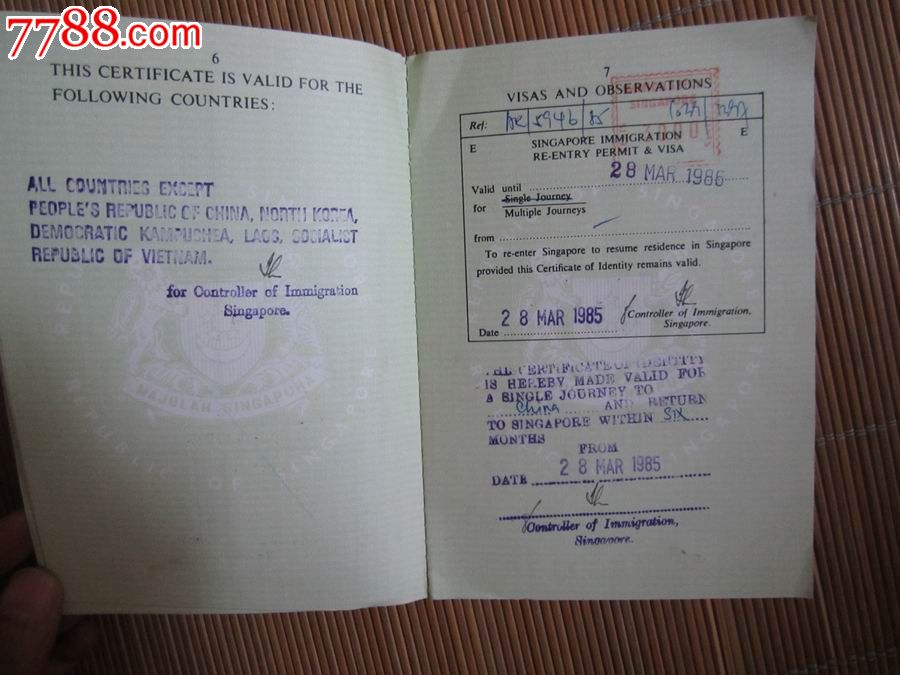 7788.com
中国收藏热线
6
THIS CERTIFICATE IS VALID FOR THE
FOLLOWING COUNTRIES:
ALL COUNTRIES EXCEPT
PEOPLE'S REPUBLIC OF CHINA, NORTH KOREA,
DEMOCRATIC KAMPUCHEA, LAOS, SOCIALIST
REPUBLIC OF VIETNAM.
for Controller of Immigration
Singapore.
MAJULAH SINGAPURA
7
VISAS AND OBSERVATIONS
SINGAPORE
Ref:
E SINGAPORE IMMIGRATION E
RE-ENTRY PERMIT & VISA
28 MAR 1986
Valid until
Single Journey
for
Multiple Journeys
from
To re-enter Singapore to resume residence in Singapore
provided this Certificate of Identity remains valid.
Date 28 MAR 1985 Controller of Immigration,
Singapore.
THE CERTIFICATE OF IDENTITY
IS HEREBY MADE VALID FOR
A SINGLE JOURNEY TO
China AND RETURN
TO SINGAPORE WITHIN SIX
MONTHS
FROM
DATE 28 MAR 1985
Controller of Immigration,
Singapore.